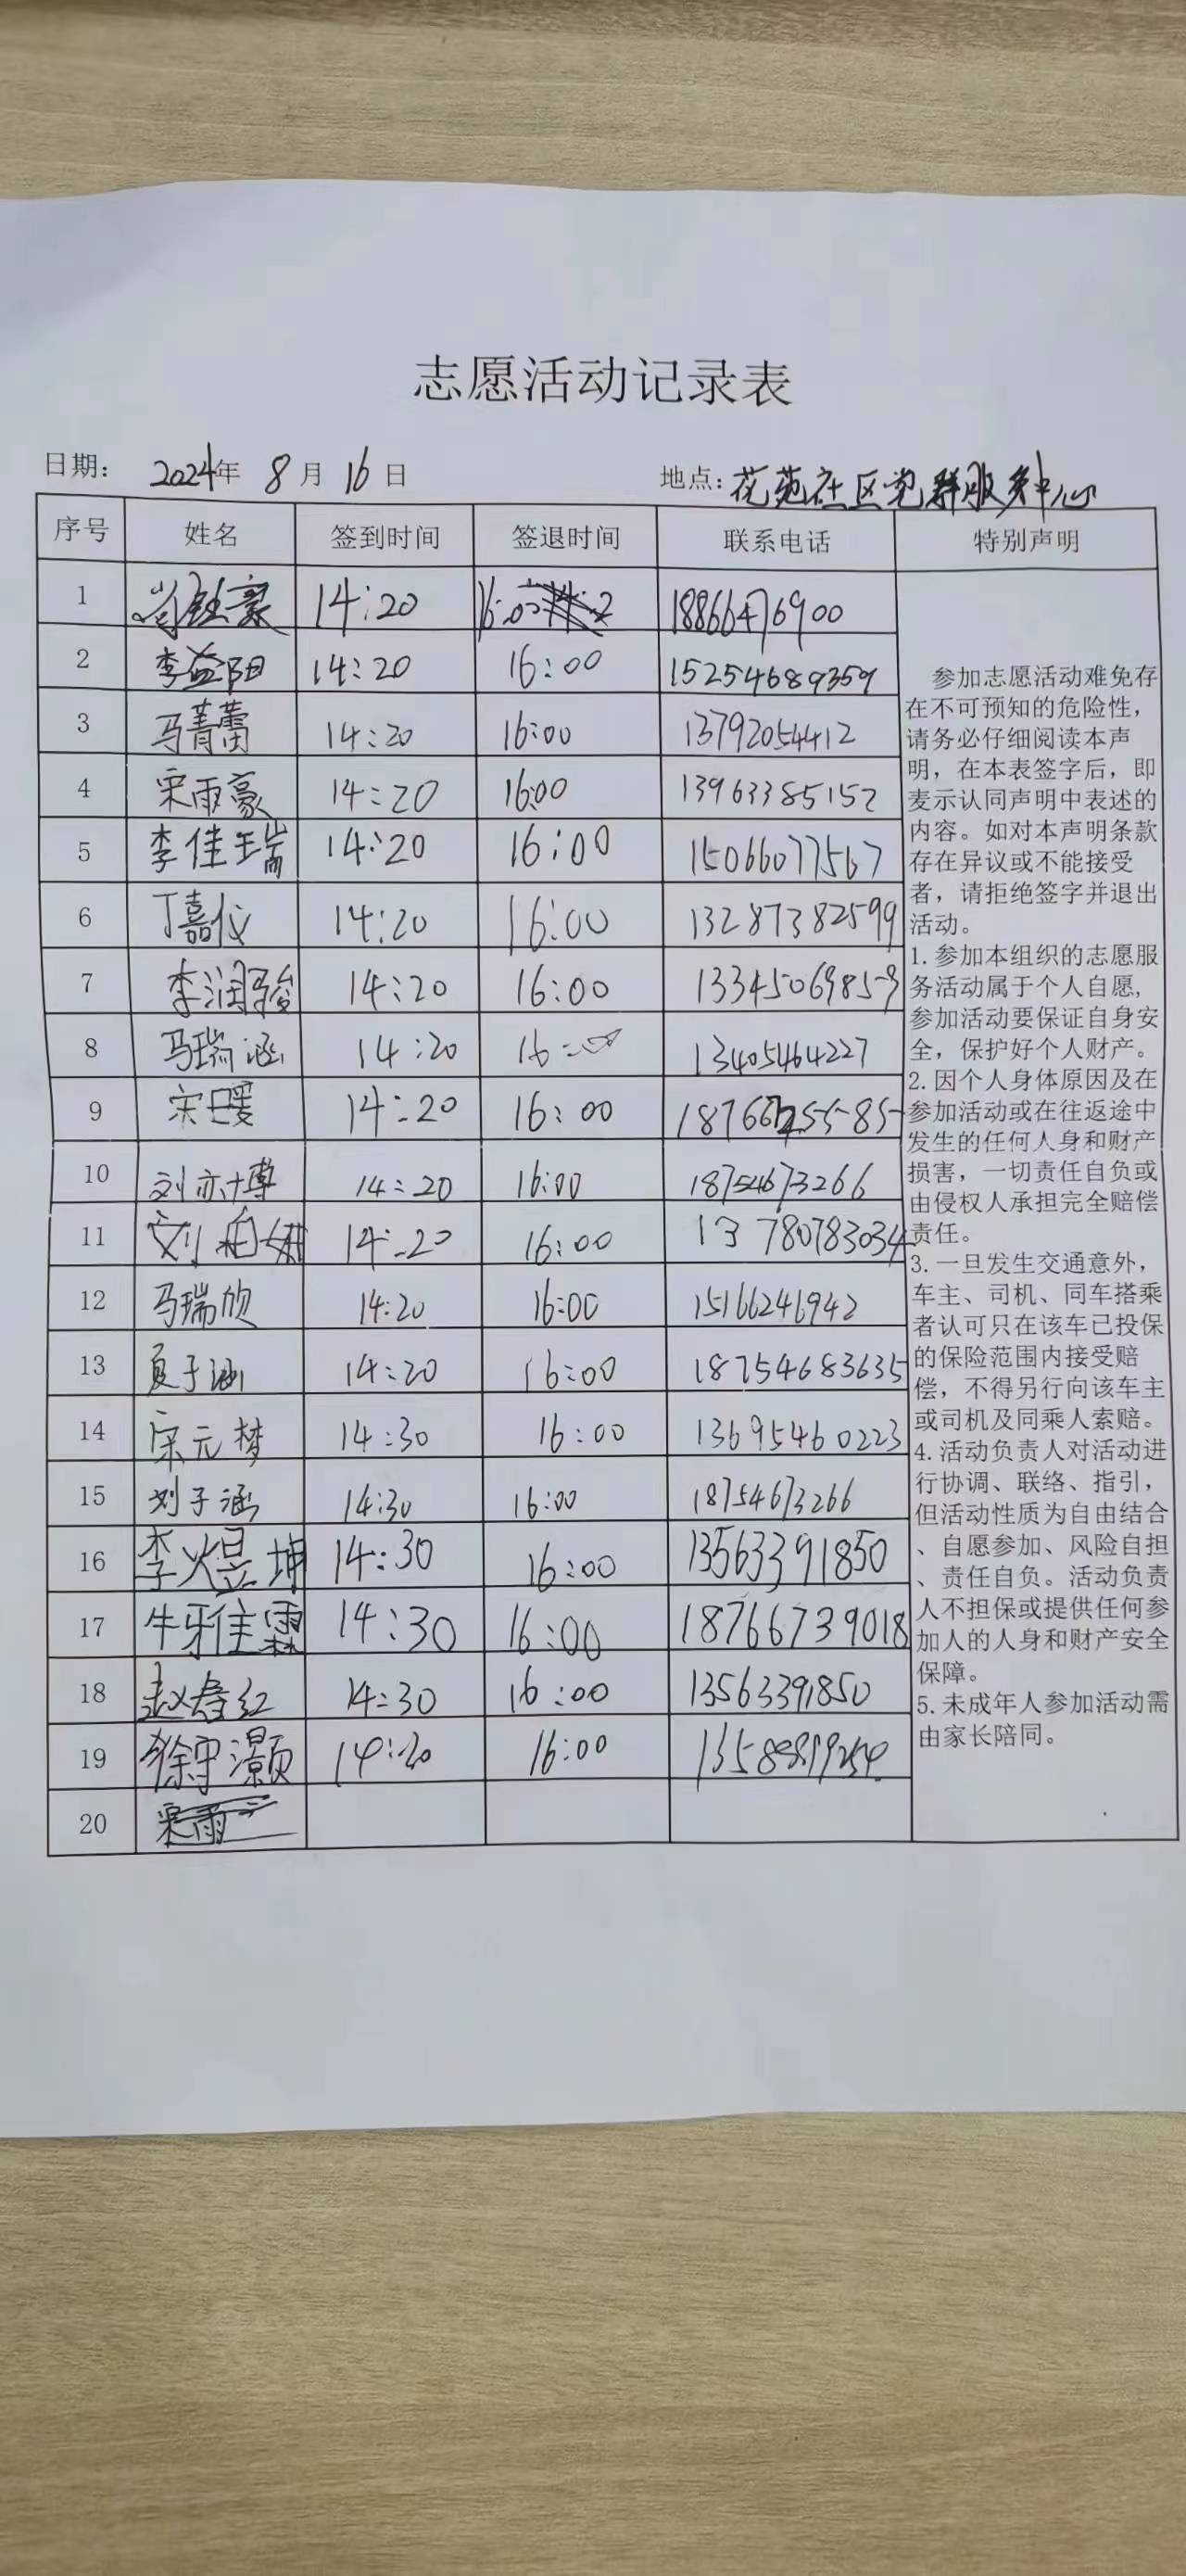 志愿活动记录表
日期: 2024年 8月 16日 地点: 花苑社区党群服务中心
序号 姓名 签到时间 签退时间 联系电话 特别声明
1 14:20 16:00 18866476900
2 李益阳 14:20 16:00 15254689359
3 马菁蕾 14:20 16:00 13792054412
4 宋雨豪 14:20 16:00 13963385152
5 李佳瑞 14:20 16:00 15066077567
6 丁嘉仪 14:20 16:00 13287382599
7 李润骏 14:20 16:00 13345069859
8 马瑞涵 14:20 16:00 13405464227
9 宋暖 14:20 16:00
10 刘亦博 14:20 16:00 18754673266
11 14:20 16:00 13780783034
12 马瑞欣 14:20 16:00 15166246942
13 夏于涵 14:20 16:00 18754683635
14 宋元梦 14:30 16:00 13695460223
15 刘子涵 14:30 16:00 18754673266
16 李煜坤 14:30 16:00 13563391850
17 牛雅霖 14:30 16:00 18766739018
18 赵春红 14:30 16:00 13563391850
19 徐守灏 14:20 16:00
20
参加志愿活动难免存
在不可预知的危险性，
请务必仔细阅读本声
明，在本表签字后，即
麦示认同声明中表述的
内容。如对本声明条款
存在异议或不能接受
者，请拒绝签字并退出
活动。
1.参加本组织的志愿服
务活动属于个人自愿，
参加活动要保证自身安
全，保护好个人财产。
2.因个人身体原因及在
参加活动或在往返途中
发生的任何人身和财产
损害，一切责任自负或
由侵权人承担完全赔偿
责任。
3.一旦发生交通意外，
车主、司机、同车搭乘
者认可只在该车已投保
的保险范围内接受赔
偿，不得另行向该车主
或司机及同乘人索赔。
4.活动负责人对活动进
行协调、联络、指引，
但活动性质为自由结合
、自愿参加、风险自担
、责任自负。活动负责
人不担保或提供任何参
加人的人身和财产安全
保障。
5.未成年人参加活动需
由家长陪同。